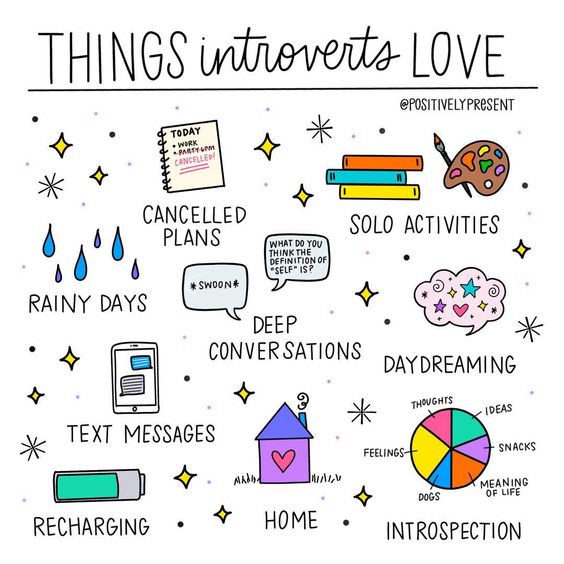 THINGS introverts LOVE
@POSITIVELYPRESENT
TODAY
• WORK
• PARTY 6PM
CANCELLED!
CANCELLED
PLANS
SOLO ACTIVITIES
RAINY DAYS
*SWOON*
WHAT DO YOU
THINK THE
DEFINITION OF
"SELF" IS?
DEEP
CONVERSATIONS
DAYDREAMING
TEXT MESSAGES
THOUGHTS
IDEAS
FEELINGS
SNACKS
MEANING
OF LIFE
DOGS
RECHARGING
HOME
INTROSPECTION